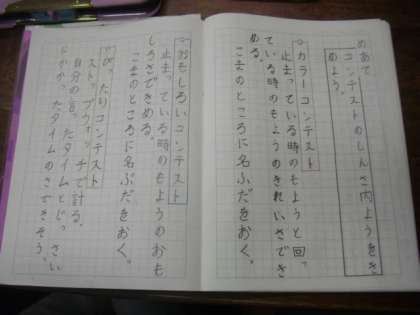 めあて
コンテストのしんさ内ようをき
めよう。
○カラーコンテスト
止まっている時のもようと回っ
ている時のもようのきれいさでき
める。
こまのところに名ふだをおく。
○おもしろいコンテスト
止まっている時のもようのおも
しろさできめる。
こまのところに名ふだをおく。
ぴったりコンテスト
ストップウォッチで計る。
自分の言ったタイムとじっさい
にかかったタイムのさできそう。